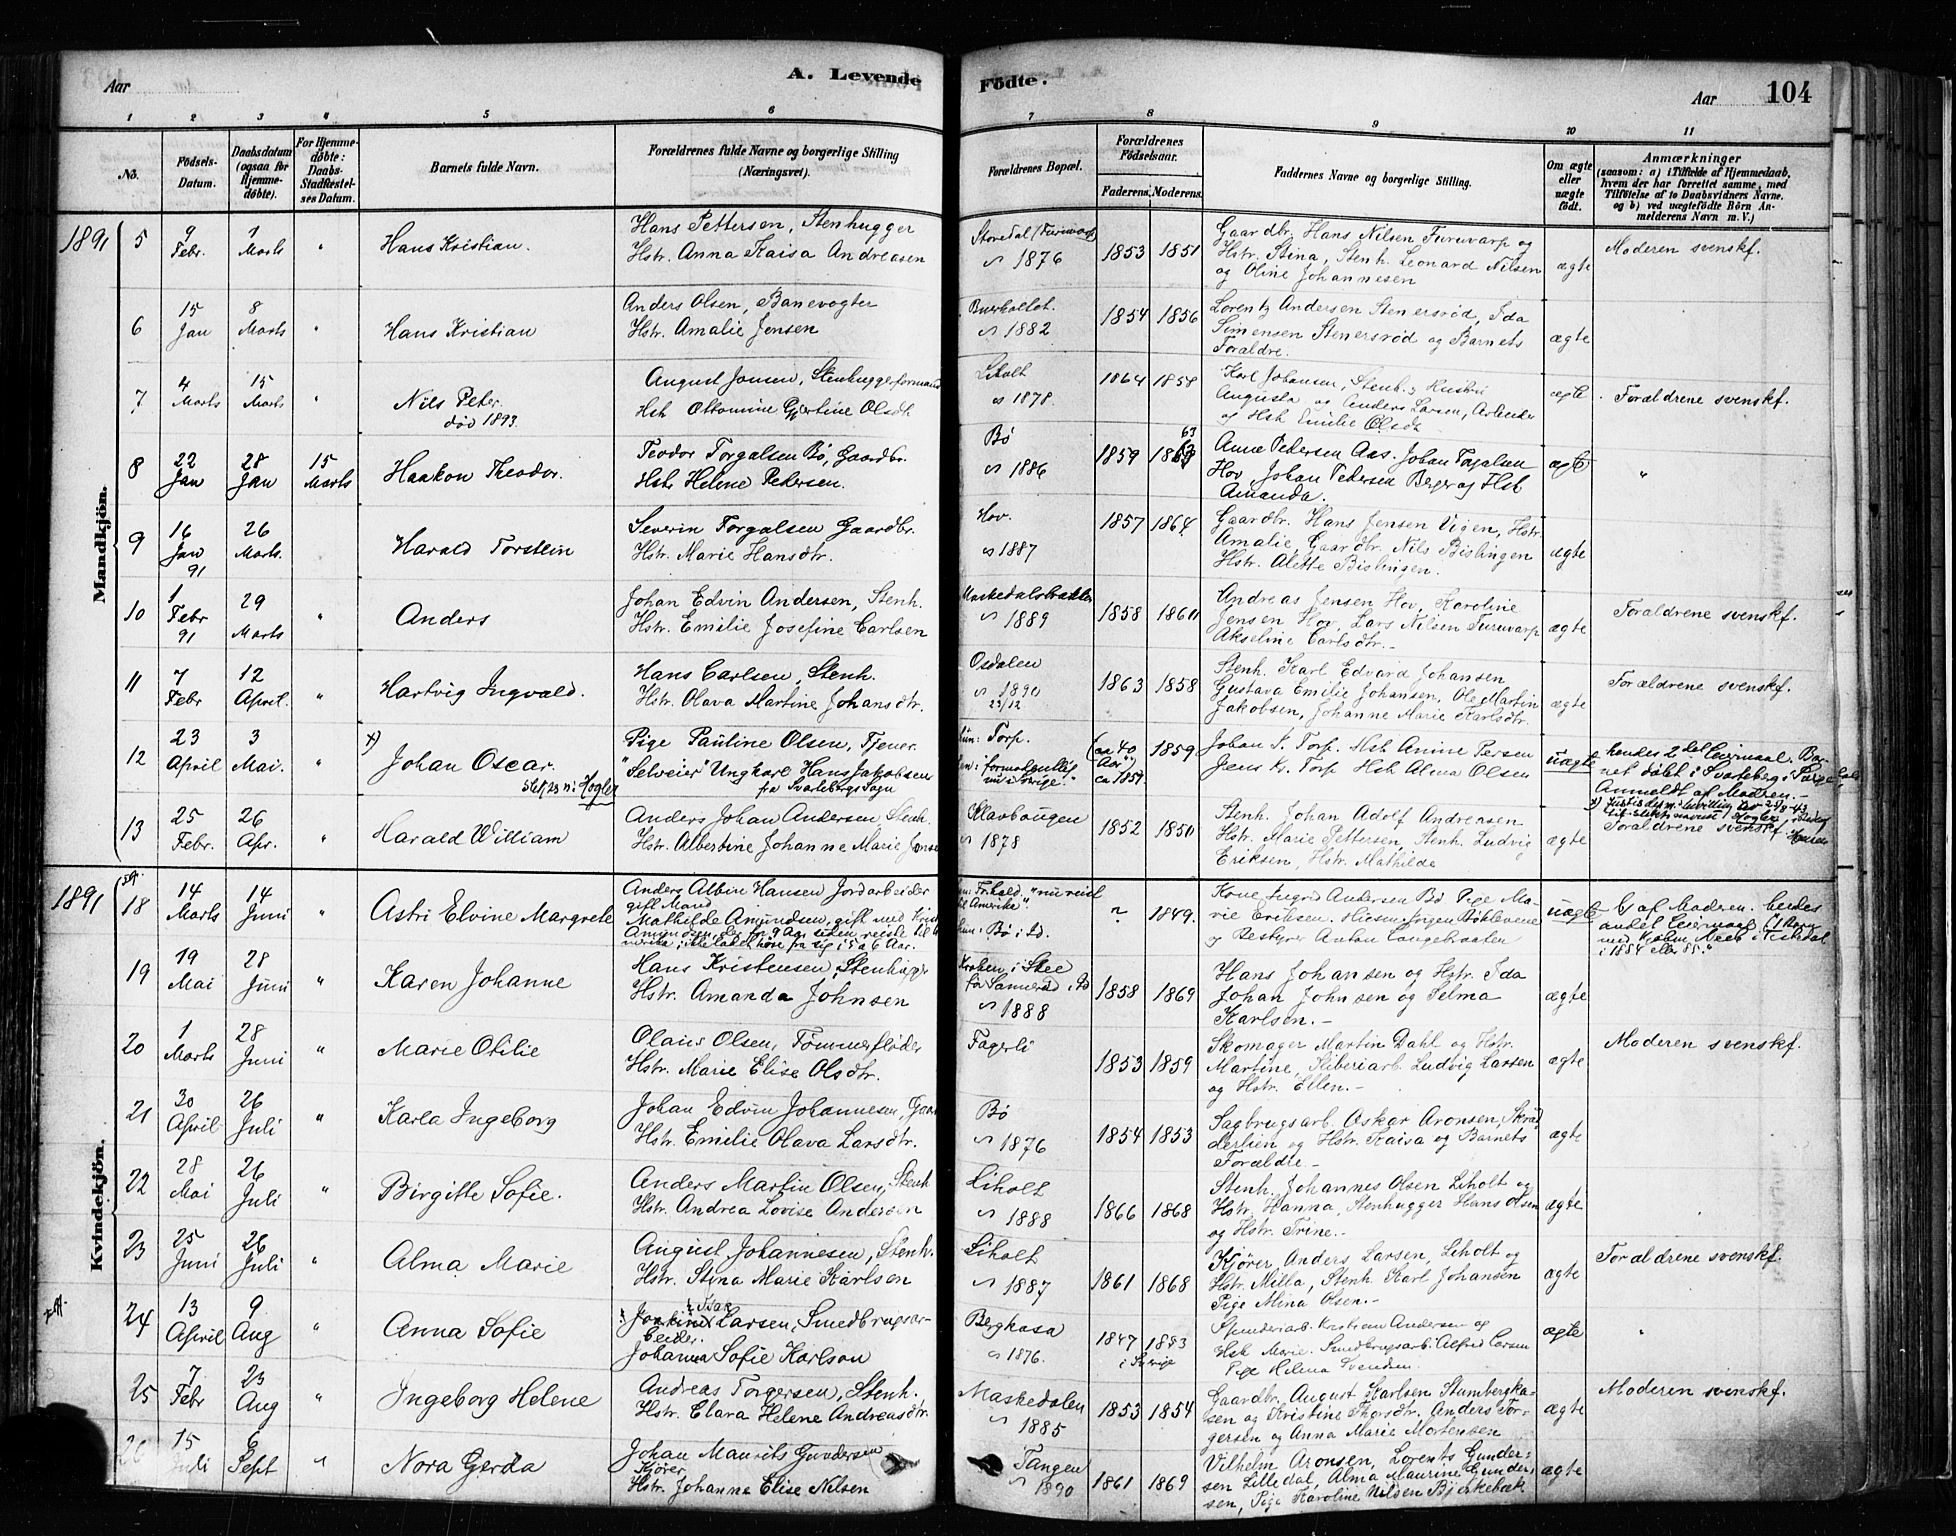 A. Levende Födte.
Aar
Aar 104
1 2 3 4 5 6 7 8 9 10 11
No. Födsels-Datum. Daabsdatum (ogsaa for Hjemmedöbte). For Hjemmedöbte: Daabs-Stadfæstelses Datum. Barnets fulde Navn. Forældrenes fulde Navne og borgerlige Stilling (Næringsvei). Forældrenes Bopæl. Forældrenes Födselsaar. Faderens. Moderens. Faddernes Navne og borgerlige Stilling. Om ægte eller uægte födt. Anmærkninger (saasom: a) i Tilfælde af Hjemmedaab, hvem der har forrettet samme, med Tilföielse af to Daabsvidners Navne. og b) ved uægtefödte Börn Anmelderens Navn m. V.)
Mandkjön.
1891 5 9 Febr. 1 Marts " Hans Kristian. Hans Pettersen, Stenhugger
Hstr. Anna Kaisa Andreasen
Storedal (Furuvarp) 1876 1853 1851 Gaardbr. Hans Nilsen Furuvarp og
Hstr. Stina, Stenh. Leonard Nilsen
og Oline Johannesen ægte Moderen svenskf.
6 15 Jan 8 Marts " Hans Kristian Anders Olsen, Banevogter
Hstr. Amalie Jensen
1882 1854 1856 Lorentz Andersen Stenersrød, Ida
Simensen Stenersrød og Barnets
Forældre. ægte
7 4 Marts 15 Marts " Nils Peter. død 1893. August Jonsen, Stenhuggerformand
Hst. Ottomine Gjertine Olsdt.
Liholt 1878. 1864 1858 Karl Johansen, Stenh. & Hustru
Augusta og Anders Larsen, Arbeider
og Hst Emilie Olsdt. ægte Forældrene svenskf.
8 22 Jan 28 Jan 15 Marts Haakon Theodor. Teodor Torgalsen Bø, Gaardbr.
Hstr Helene Pedersen.
Bø 1886 1859 1863 63 Anne Pedersen Aas. Johan Torgalsen
Hov, Johan Pedersen Berger og Hst
Amanda. ægte "
9 16 Jan 91 26 Marts. Harald Torstein Severin Torgalsen Gaardbr.
Hstr. Marie Hansdtr.
Hov. 1887 1857 1864. Gaardbr. Hans Jensen Vigen, Hstr.
Amalie, Gaardbr. Nils Bislingen
Hstr. Alette Bislingen. ægte
10 1 Febr 91 29 Marts " Anders Johan Edvin Andersen, Stenh.
Hstr. Emilie Josefine Carlsen
Maskedalsbakken 1889 1858 1860 Andreas Jensen Hov, Karoline
Jensen Hov, Lars Nilsen Furuvarp
Akseline Carlsdtr. ægte Forældrene svenskf.
11 7 Febr 12 April. " Hartvig Ingvald. Hans Carlsen, Stenh.
Hstr. Olava Martine Johansdtr.
Osdalen 1890 23/12 1863 1858 Stenh. Karl Edvard Johansen
Gustava Emilie Johansen, Ole Martin
Jakobsen, Johanne Marie Karlsdtr. ægte Forældrene svenskf.
12 23 April 3 Mai. x) Johan Oscar. Hogler Pige Pauline Olsen, Tjener.
"Selveier" Ungkarl Hans Jakobsen
fra Svarteborgs Sogn
hun: Torp. han: formentlig nu i Sverige." (ca 40 Aar) ca 1859 1859 Johan A. Torp. Hst. Anine Persen
Jens K. Torp Hst Alma Olsen uægte hendes 2det Leiermaal. Barnet
døbt i Svarteborg i
Anmeldt af Modren.-
13 25 Febr. 26 Apr. " Harald William Anders Johan Andersen, Stenh.
Hstr. Albertine Johanne Marie
Klavhaugen 1878 1852 1850 Stenh. Johan Adolf Andreasen
Hstr. Marie Pettersen, Stenh. Ludvig
Eriksen, Hstr. Mathilde ægte Forældrene svenskf.
Kvindekjön.
1891 18 14 Marts 14 Juni " Astri Elvine Margrete Anders Albin Hansen Jordarbeider
gift Mand
Mathilde Amundsen, gift med
Amundsen, der for 9 Aar siden reiste til
Amerika, ikke ladet høre fra sig i 5 a 6 Aar.
han: Fr.hald. "nu reist til Amerika". hun: Bø i Id. 1849. Kone Ingrid Andersen Bø Pige Marie
Eriksen.
og Bestyrer Anton Langebraaten uægte af Moderen. hendes
andet Leiermaal
i 1854 eller 55."
19 19 Mai 28 Juni " Karen Johanne Hans Kristensen, Stenhugger
Hstr. Amanda Johnsen
Kroken i Skee 1888 1858 1869 Hans Johansen og Hstr. Ida
Johan Johnsen og Selma
Karlsen.- ægte
20 1 Marts 28 Juni " Marie Otilie Olaus Olsen, Tømmerfløder
Hstr. Marie Elise Olsdtr.
Fagerli 1853 1859 Skomager Martin Dahl og Hstr.
Martine, Sliberiarb. Ludvig Larsen
og Hstr. Ellen.- ægte Moderen svenskf.
21 30 April 26 Juli " Karla Ingeborg Johan Edvin Johannesen,
Hstr. Emilie Olava Larsdtr.
Bø 1876 1854 1853 Sagbrugsarb. Oskar Aronsen, Skræd
derlien og Hstr. Kaisa og Barnets
Forældre.- ægte
22 28 Mai 26 Juli " Birgitte Sofie. Anders Martin Olsen, Stenh
Hstr. Andrea Lovise Andersen
Liholt 1888 1866 1868 Stenh. Johannes Olsen Liholt og
Hstr. Hanna, Stenhugger Hans Olsen
og Hstr. Trine.- ægte
23 25 Juni 26 Juli " Alma Marie August Johannesen, Stenh.
Hstr. Stina Marie Karlsen
Liholt 1887 1861 1868 Kjører, Anders Larsen, Liholt og
Hstr. Milla, Stenh. Karl Johansen
Pige Mina Olsen.- ægte Forældrene svenskf.
24 13 April 9 Aug " Anna Sofie Larsen, Smedbrugsar-
beider.
Johanna Sofie Karlson
Bergkasa 1876. 1847 1853 i Sverige Spinderiarb. Kristian Andersen og
Hst Marie. Smedbrugsarb. Alfred Larsen
Pige Helena Svendsen ægte "
25 7 Febr 23 Aug " Ingeborg Helene Andreas Torgersen, Stenh.
Hstr. Clara Helene Andreasdtr.
Maskedalen 1885 1853 1854 Gaardbr. August Karlsen Stumbergka-
sen og Kristine Thorsdtr. Anders Tor-
gersen og Anna Marie Mortensen ægte Moderen svenskf.
26 15 Juli 6 Sept " Nora Gerda Johan Maurits Gundersen
Kjører
Hstr. Johanne Elise Nilsen
Tangen 1890 1861 1869 Vilhelm Aronsen, Lorents Gunder-
sen Lilledal, Alma Maurine Gunder-
sen, Pige Karoline Nilsen Bjerkebæk ægte